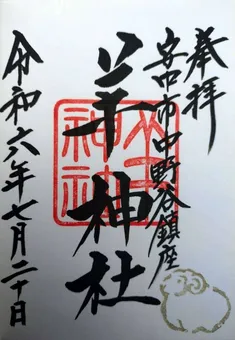 奉拝
安中市中野谷鎮座
羊神社
令和六年七月二十日